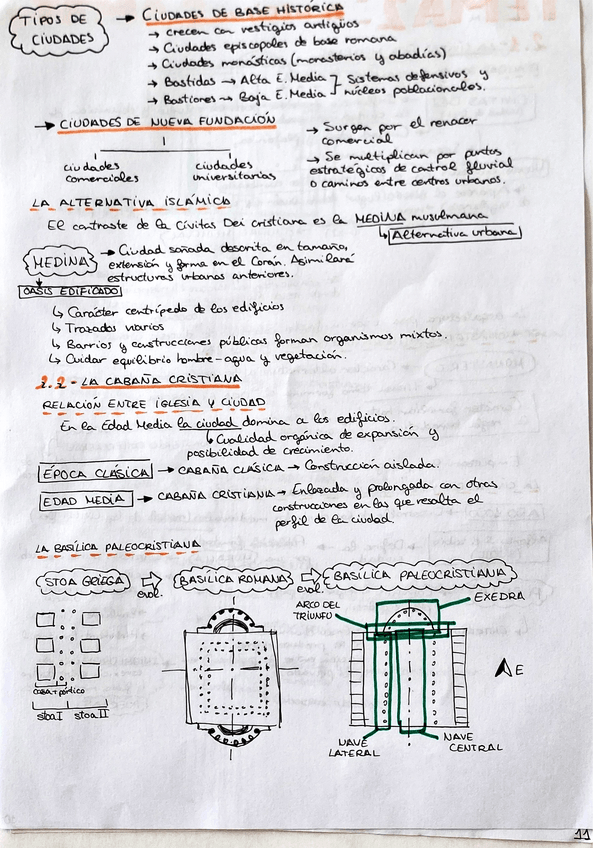 TIPOS DE
CIUDADES
→ CIUDADES DE BASE HISTÓRICA
→ crecen con vestigios antiguos
→ Ciudades episcopales de base romana
→ Ciudades monásticas (monasterios y abadías)
→ Bastidas → Alta E. Media
→ Bastiones → Baja E. Media
Sistemas defensivos y
núcleos poblacionales.
→ CIUDADES DE NUEVA FUNDACIÓN
ciudades
comerciales
ciudades
universitarias
→ Surgen por el renacer
comercial
→ Se multiplican por puntos
estratégicos de control fluvial
o caminos entre centros urbanos.
LA ALTERNATIVA ISLÁMICA
El contraste de la Civitas Dei cristiana es la MEDINA musulmana
↳ Alternativa urbana
MEDINA → Ciudad soñada descrita en tamaño,
extensión y forma en el Corán. Asimilará
estructuras urbanas anteriores.
OASIS EDIFICADO
↳ Carácter centrípedo de los edificios
↳ Trazados viarios
↳ Barrios y construcciones públicas forman organismos mixtos.
↳ Cuidar equilibrio hombre-agua y vegetación.
2.2- LA CABAÑA CRISTIANA
RELACIÓN ENTRE IGLESIA Y CIUDAD
En la Edad Media la ciudad domina a los edificios.
↳ Cualidad orgánica de expansión y
posibilidad de crecimiento.
ÉPOCA CLÁSICA → CABAÑA CLÁSICA → Construcción aislada.
EDAD MEDIA → CABAÑA CRISTIANA → Enlazada y prolongada con otras
construcciones en las que resalta el
perfil de la ciudad.
LA BASÍLICA PALEOCRISTIANA
STOA GRIEGA
evol.
BASÍLICA ROMANA
evol.
BASÍLICA PALEOCRISTIANA
ARCO DEL
TRIUNFO
EXEDRA
E
casa+pórtico
stoa I
stoa II
NAVE
LATERAL
NAVE
CENTRAL
11